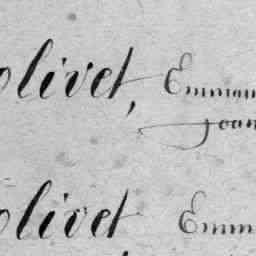 olivet, Emmanu
Joan
olivet Emm